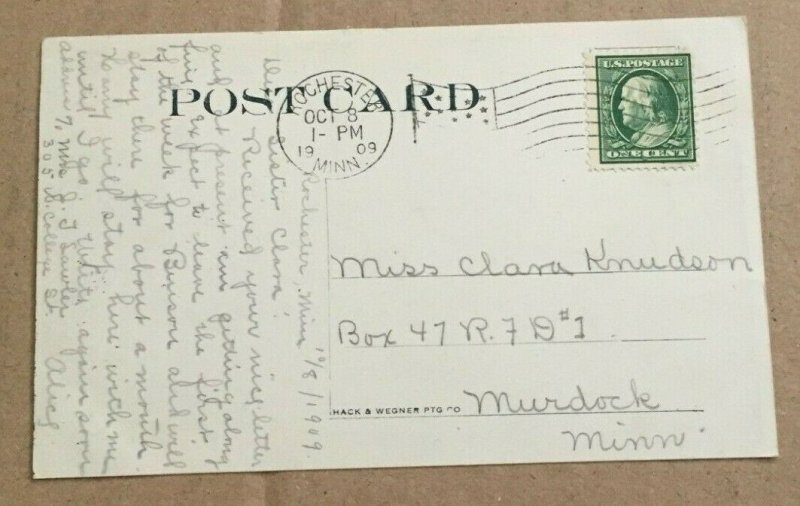 POST CARD
ROCHESTER
OCT 8
1-PM
1909
MINN.
U.S. POSTAGE
ONE CENT
Miss Clara Knudson
Box 47 R. F D #1
Murdock
Minn.
HACK & WEGNER PTG CO
Rochester, Minn 10/8/1909.
Dear Sister Clara:
Received your nice letter
and at present am getting along
fine, expect to leave the first
of the week for Benson and will
stay there for about a month.
will stay here with me
until I go. Write again soon
Alice
Mrs. J. T. Lawler
305 N. College St